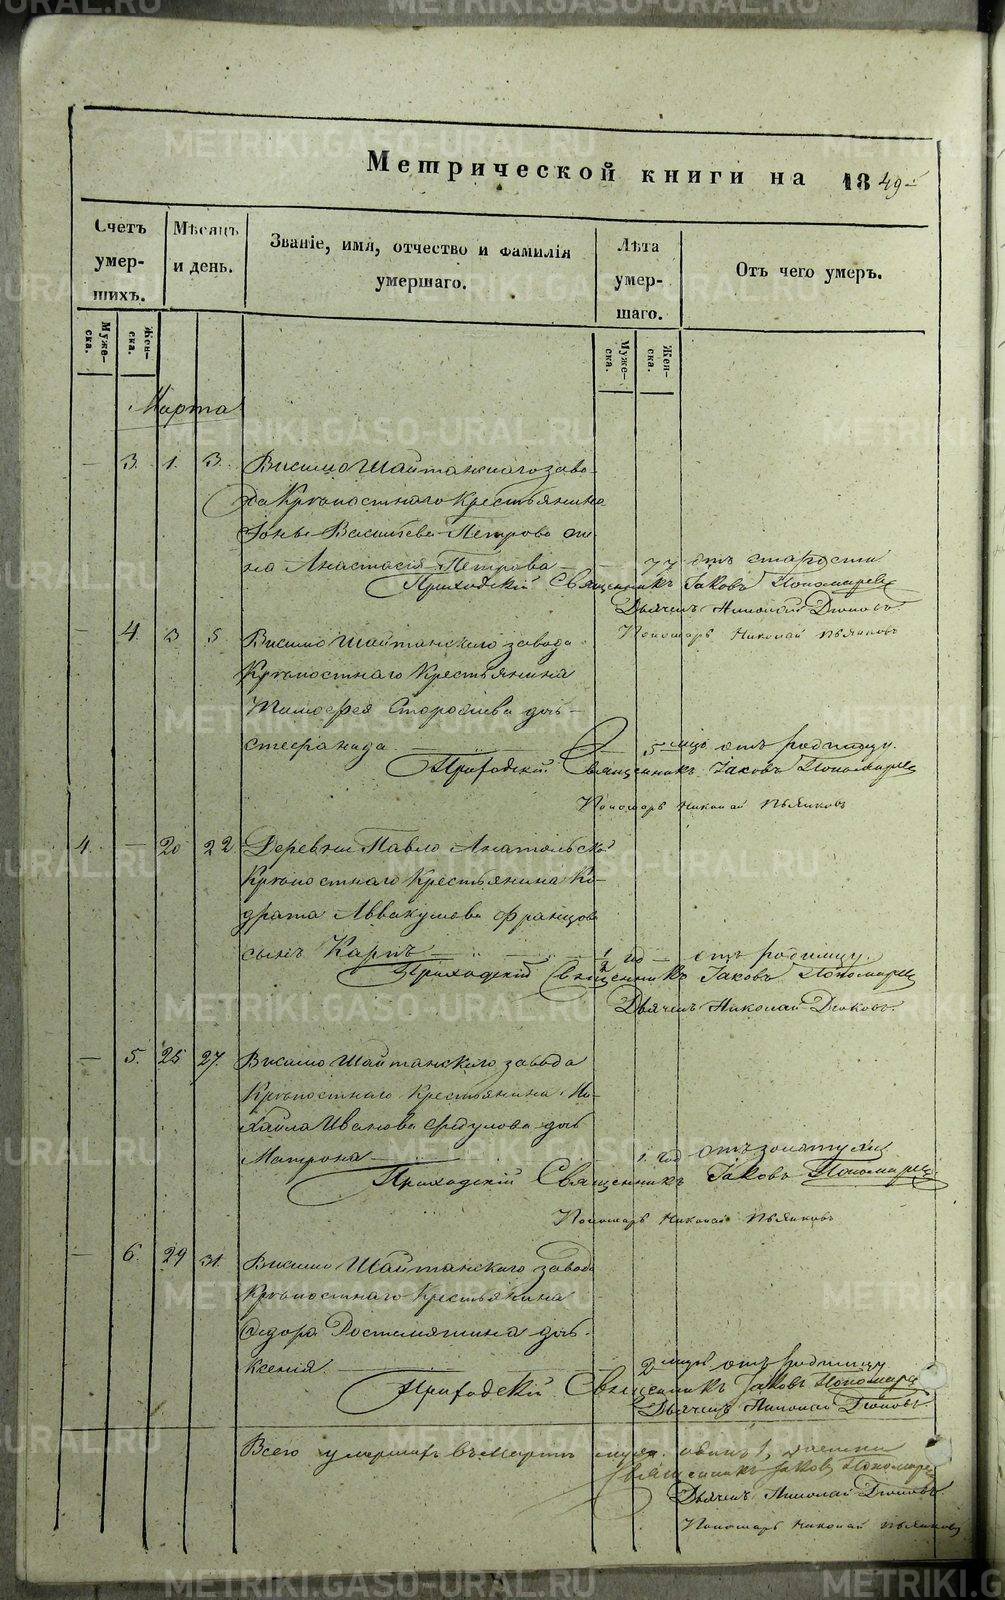 Метрической книги на 1849
Счетъ умер-шихъ.
Мѣсяцъ и день.
Званіе, имя, отчество и фамилія умершаго.
Лѣта умер-шаго.
Отъ чего умеръ.
Муже-ска. Жен-ска. Муже-ска. Жен-ска.
Марта
— 3. 1. 3. Висимо Шайтанскаго заво-
да Крѣпостнаго Крестьянина
Васильева Петрова
на Анастасія Петрова 77 отъ старости
Приходскій Священникъ Іаковъ Пономаревъ
Дьячекъ Николай
Пономарь Николай Пьянковъ
— 4. 3 5. Висимо Шайтанскаго завода
Крѣпостнаго Крестьянина
Тимофея дочь
Стефанида. 5 мцъ отъ родимцу.
Приходскій Священникъ Іаковъ Пономаревъ
Пономарь Николай Пьянковъ
4. — 20 22. Деревни Павло Анатольской
Крѣпостнаго Крестьянина Ко-
драта Аввакумова
сынъ Карпъ — 1/2 го — отъ родимцу.
Приходскій Священникъ Іаковъ Пономаревъ
Дьячекъ Николай
— 5. 25 27. Висимо Шайтанскаго завода
Крѣпостнаго Крестьянина Ми-
хайла Иванова Федулова дочь
Матрона 1. год отъ золотухи
Приходскій Священникъ Іаковъ Пономаревъ
Пономарь Николай Пьянковъ
— 6. 29 31. Висимо Шайтанскаго завода
Крѣпостнаго Крестьянина
Федора дочь
Ксенія. 2 мцъ отъ родимцу
Приходскій Священникъ Іаковъ Пономаревъ
Дьячекъ Николай
Всего умершихъ въ Мартѣ муж. одинъ 1,
Священникъ Іаковъ Пономаревъ
Дьячекъ Николай
Пономарь Николай Пьянковъ
METRIKI.GASO-URAL.RU